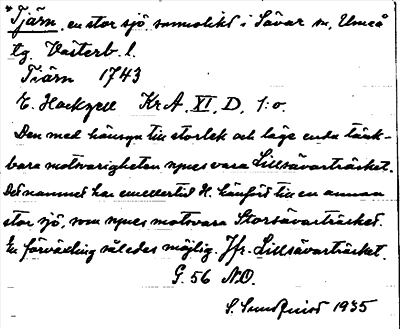 *Tjärn, en stor sjö sannolikt i Sävar sn, Umeå
tg. Västerb. l.
Tiärn 1743
E. Hackzell KrA, XI, D, 1:o.
Den med hänsyn till storlek och läge enda tänk-
bara motsvarigheten synes vara Lillsävarträsket.
Det namnet har emellertid H. hänfört till en annan
stor sjö, som synes motsvara Storsävarträsket.
En förväxling således möjlig. Jfr. Lillsävarträsket.
G. 56 NO.
S. 1935